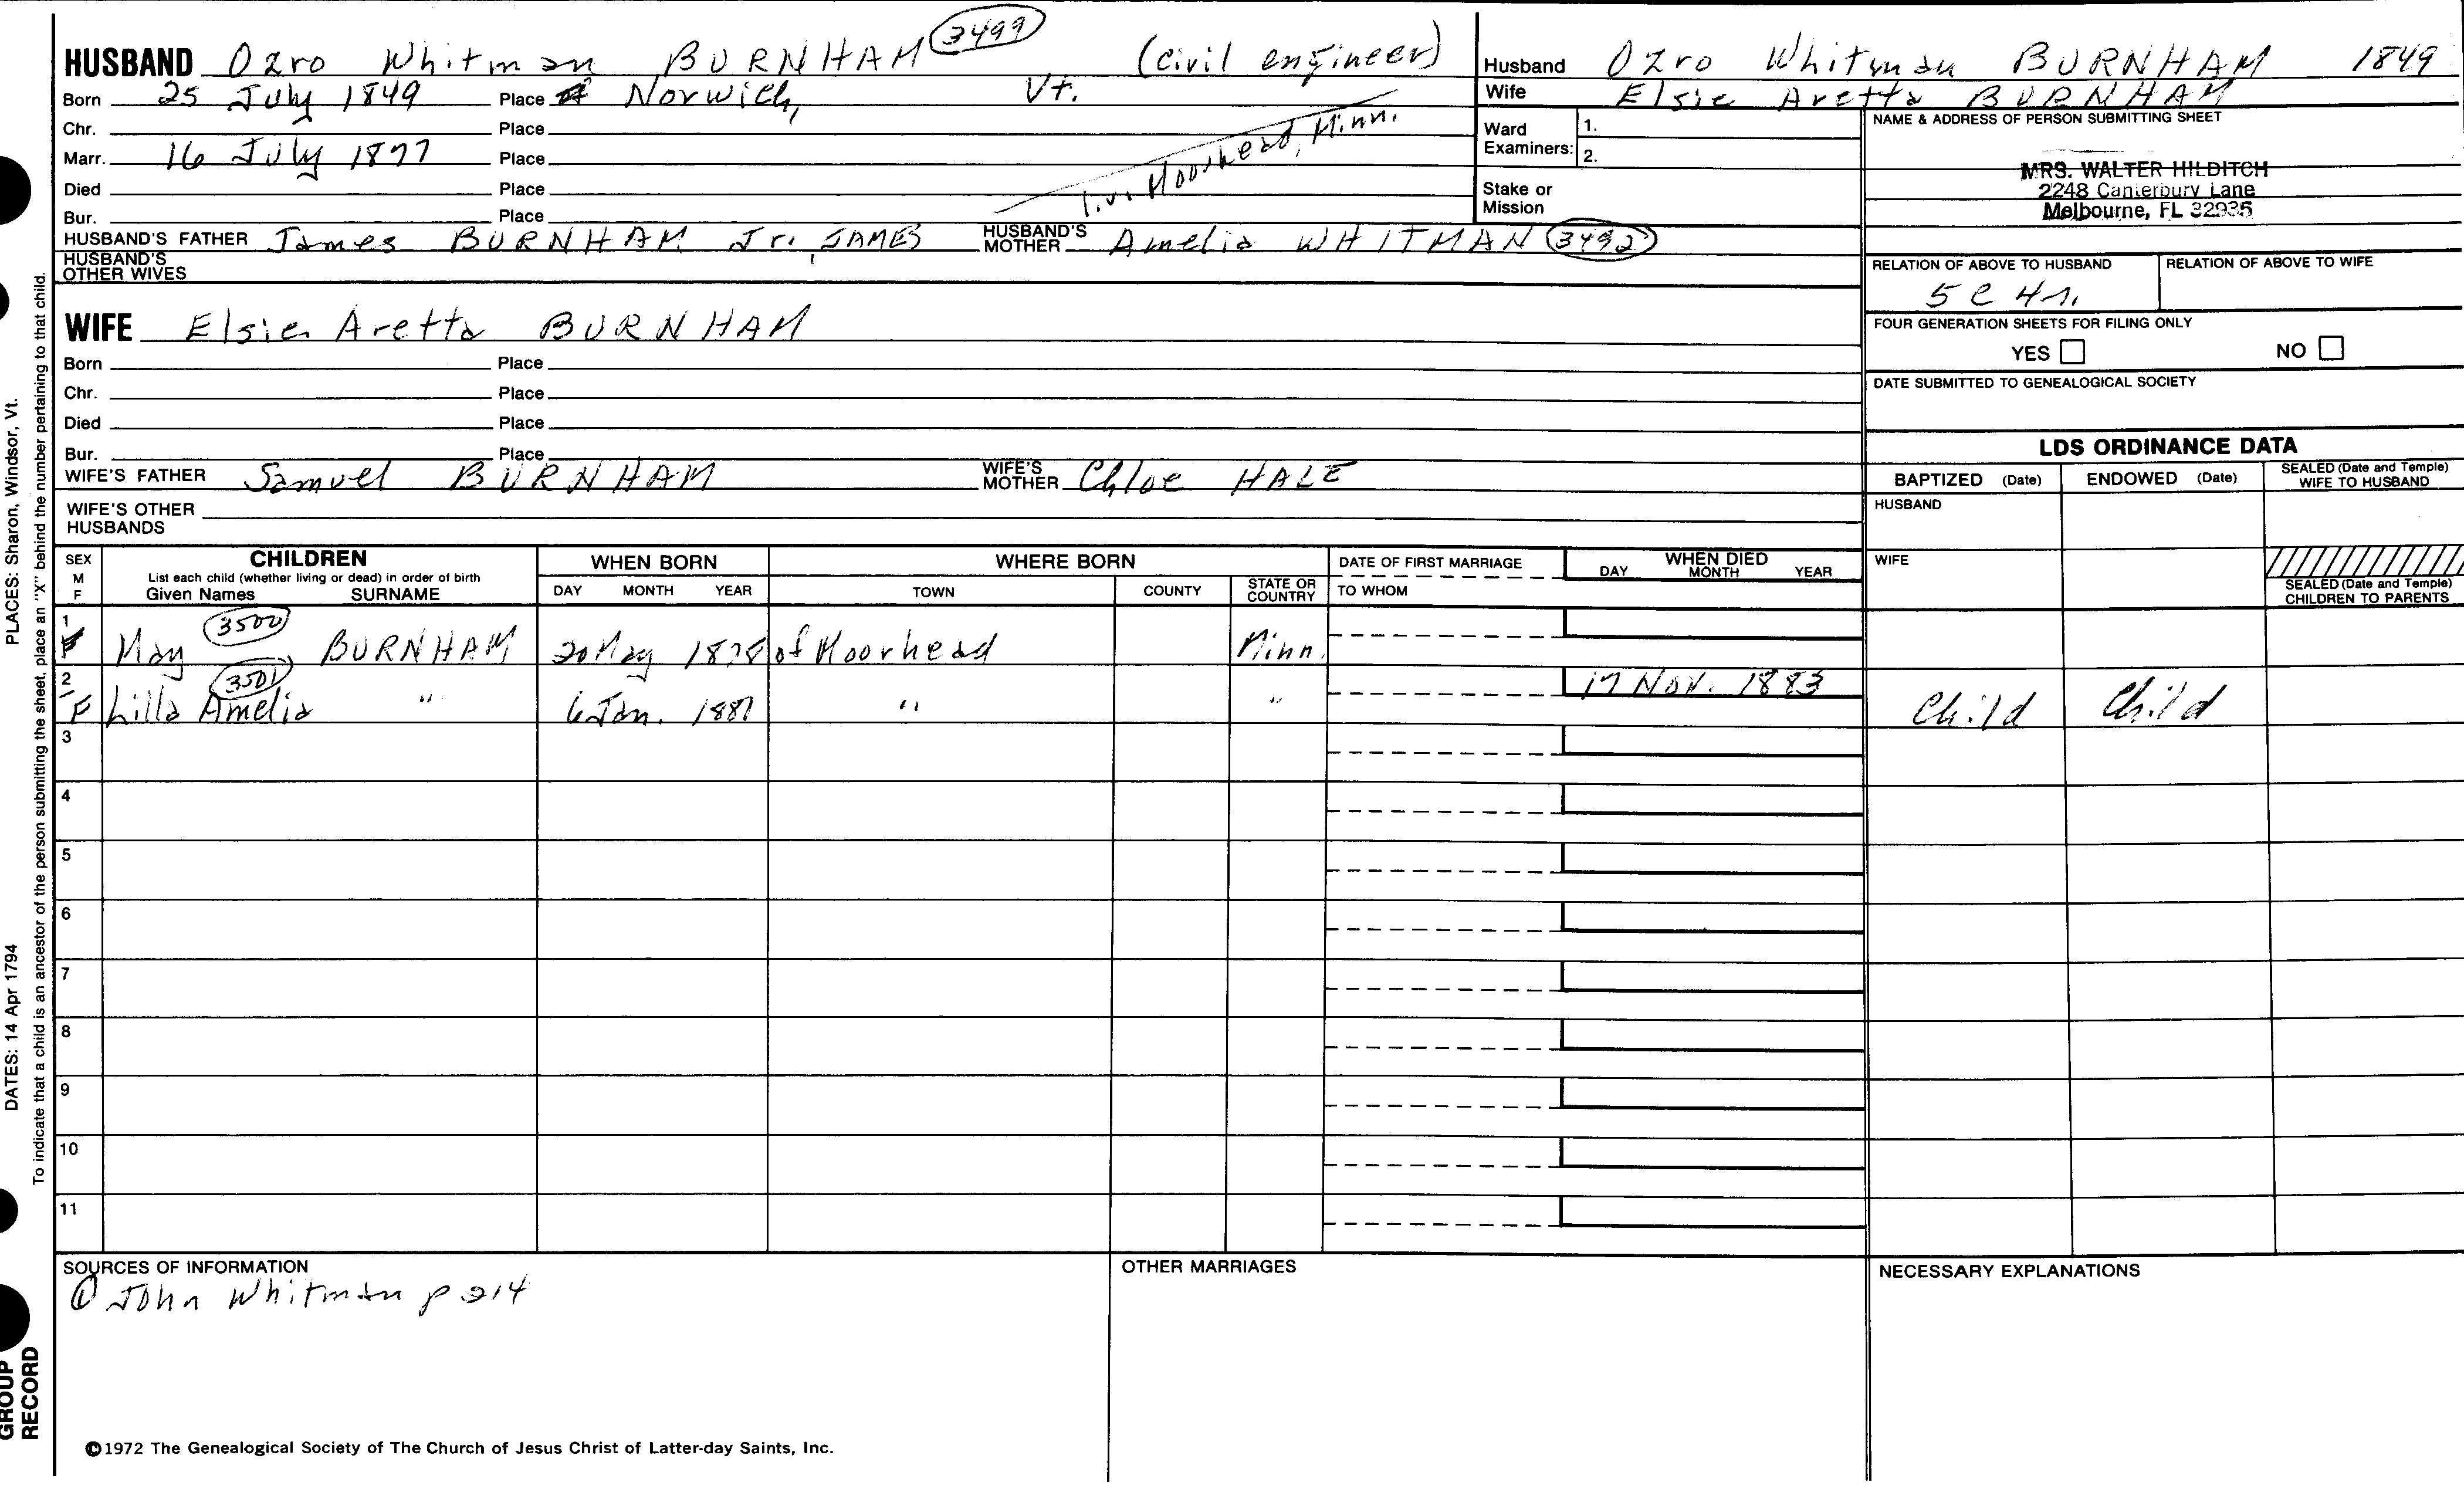 HUSBAND Ozro Whitman BURNHAM 3499 (civil engineer)
Born 25 July 1849 Place Norwich, Vt.
Chr. Place
Marr. 16 July 1877 Place
Died Place liv. Moorhead, Minn.
Bur. Place
HUSBAND'S FATHER James BURNHAM Jr., JAMES HUSBAND'S MOTHER Amelia WHITMAN 3492
HUSBAND'S OTHER WIVES
WIFE Elsie Aretta BURNHAM
Born Place
Chr. Place
Died Place
Bur. Place
WIFE'S FATHER Samuel BURNHAM WIFE'S MOTHER Chloe HALE
WIFE'S OTHER HUSBANDS
Husband Ozro Whitman BURNHAM 1849
Wife Elsie Aretta BURNHAM
Ward Examiners: 1.
2.
Stake or Mission
NAME & ADDRESS OF PERSON SUBMITTING SHEET
MRS. WALTER HILDITCH
2248 Canterbury Lane
Melbourne, FL 32935
RELATION OF ABOVE TO HUSBAND RELATION OF ABOVE TO WIFE
5 C 4 r.
FOUR GENERATION SHEETS FOR FILING ONLY
YES NO
DATE SUBMITTED TO GENEALOGICAL SOCIETY
LDS ORDINANCE DATA
BAPTIZED (Date) ENDOWED (Date) SEALED (Date and Temple) WIFE TO HUSBAND
HUSBAND
WIFE
SEALED (Date and Temple) CHILDREN TO PARENTS
SEX M F CHILDREN WHEN BORN WHERE BORN DATE OF FIRST MARRIAGE WHEN DIED
List each child (whether living or dead) in order of birth
Given Names SURNAME DAY MONTH YEAR TOWN COUNTY STATE OR COUNTRY TO WHOM DAY MONTH YEAR
1 F May 3500 BURNHAM 20 May 1878 of Moorhead Minn.
2 F Lilla Amelia 3501 " 6 Jan. 1881 " " 17 Nov. 1883 Child Child
3
4
5
6
7
8
9
10
11
SOURCES OF INFORMATION
① John Whitman p 214
OTHER MARRIAGES
NECESSARY EXPLANATIONS
©1972 The Genealogical Society of The Church of Jesus Christ of Latter-day Saints, Inc.
GROUP RECORD
DATES: 14 Apr 1794 PLACES: Sharon, Windsor, Vt.
To indicate that a child is an ancestor of the person submitting the sheet, place an "X" behind the number pertaining to that child.